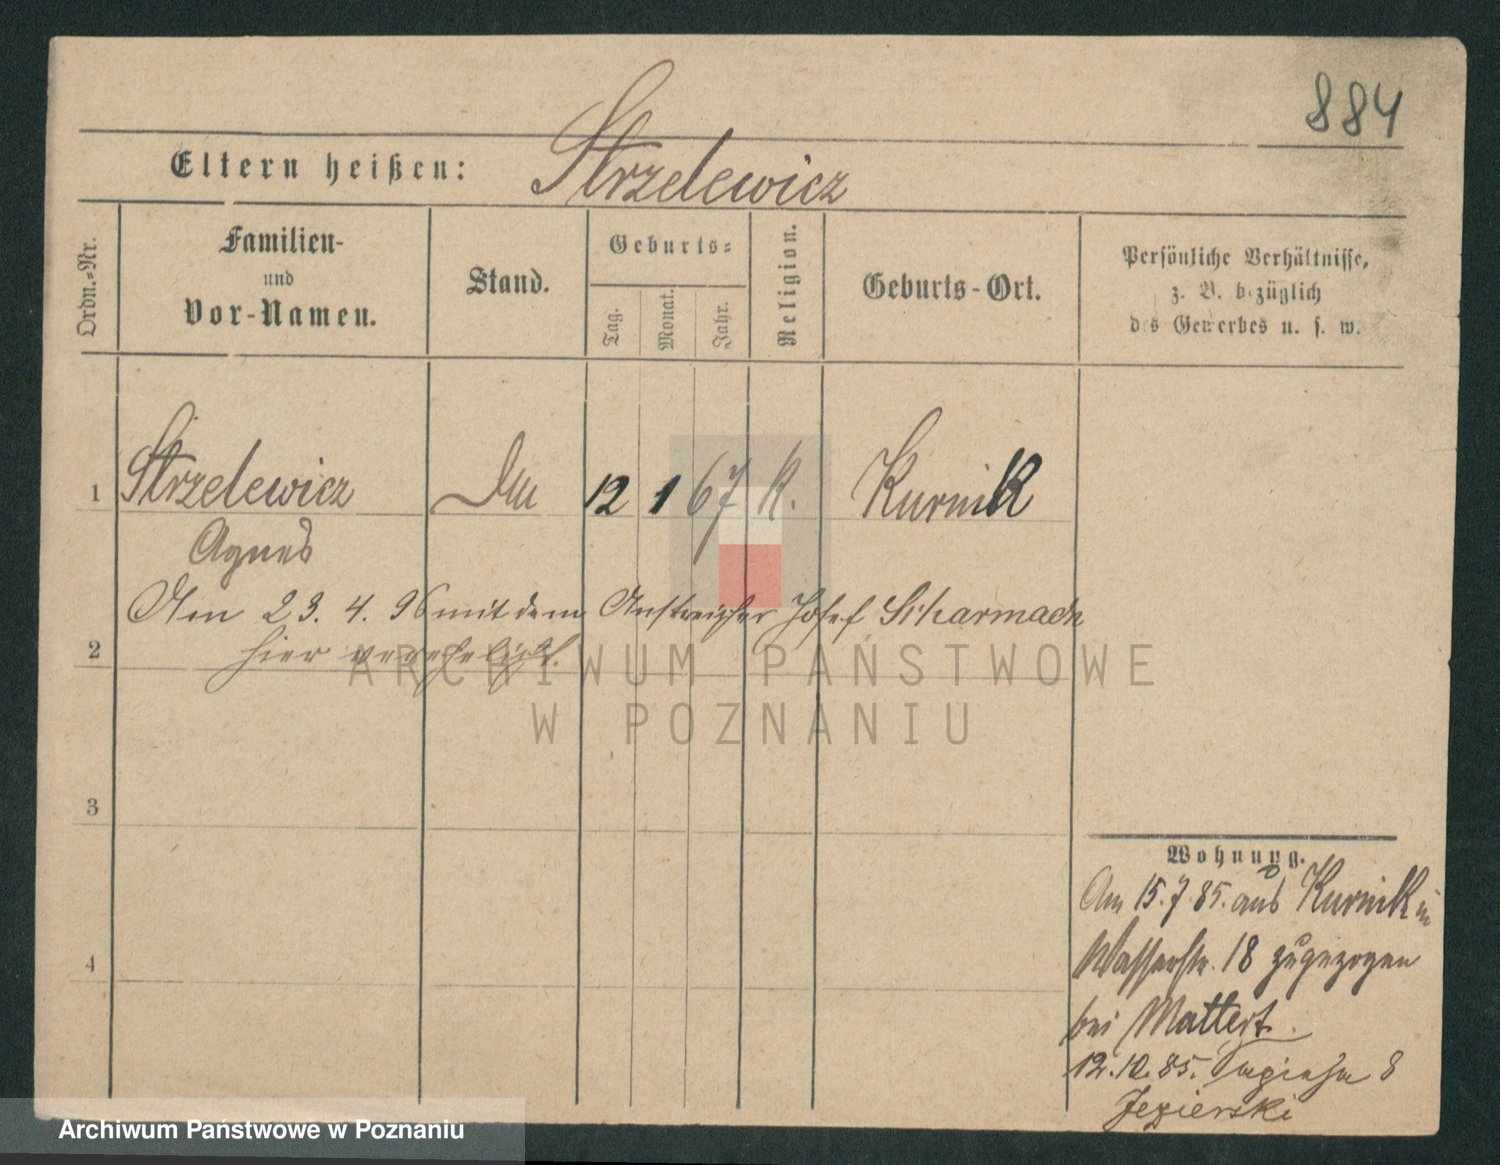 884
Eltern heißen: Strzelewicz
Ordn.-Nr.
Familien-
und
Vor-Namen.
Stand.
Geburts-
Tag.
Monat.
Jahr.
Religion.
Geburts-Ort.
Persönliche Verhältnisse,
z. B. bezüglich
des Gewerbes u. s. w.
1 Strzelewicz 12 1 67 K. Kurnik
Agnes
Am 23. 4. 96 mit dem Anstreicher Josef Scharmach
2 hier verehelicht.
ARCHIWUM PAŃSTWOWE
W POZNANIU
3
4
Wohnung.
Am 15.7.85. aus Kurnik in
Wasserstr. 18 zugezogen
bei Mattert.
12.10.85. 8
Jezierski
Archiwum Państwowe w Poznaniu